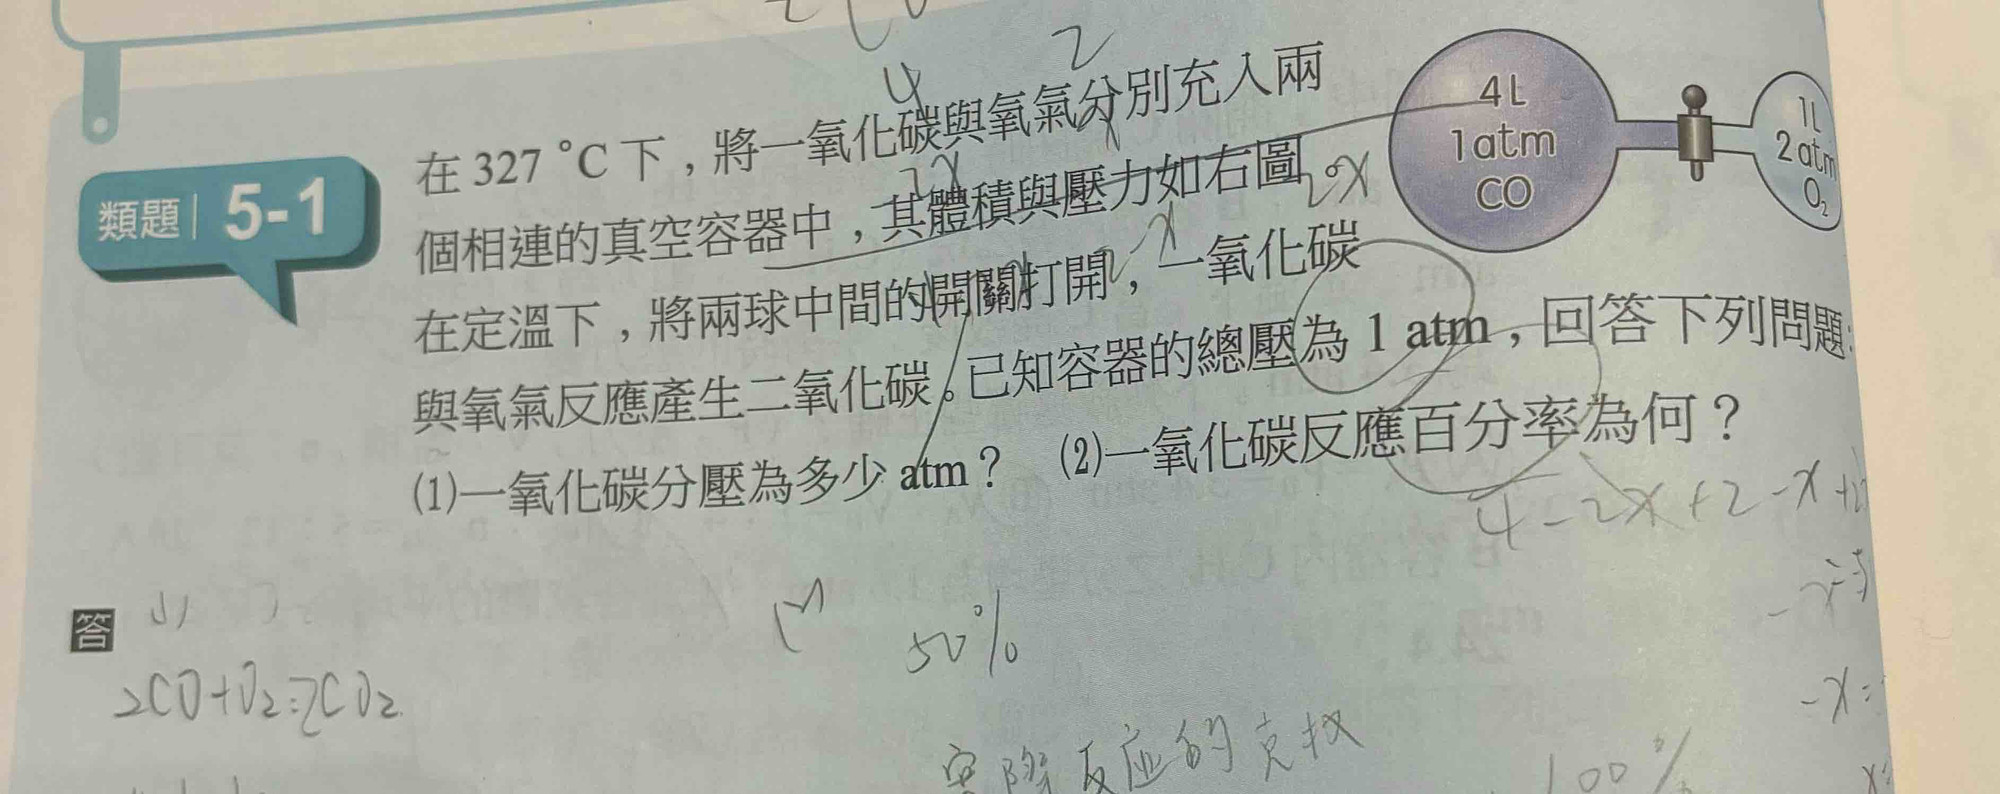 4
2
4L
1atm
CO
1L
2atm
O₂
類題 5-1
在 327 °C 下，將一氧化碳與氧氣分別充入兩
個相連的真空容器中，其體積與壓力如右圖，
在定溫下，將兩球中間的開關打開，一氧化碳
與氧氣反應產生二氧化碳。已知容器的總壓為 1 atm，回答下列問題：
(1)一氧化碳分壓為多少 atm？ (2)一氧化碳反應百分率為何？
2x
x
2x
4-2x+2-x+2
答
(1)
50%
2CO+O₂⇌2CO₂
-x=
實際反應的克數
100%